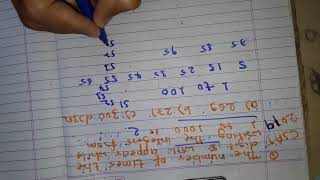 Q The number of times the
CSAT digit 8 will appear while
2019 writing the
1 to 1000 is ?
(a) 269 b) 271 c) 300
1 to 100 51 52
5 15 25 35 45 55 65
75 85 95